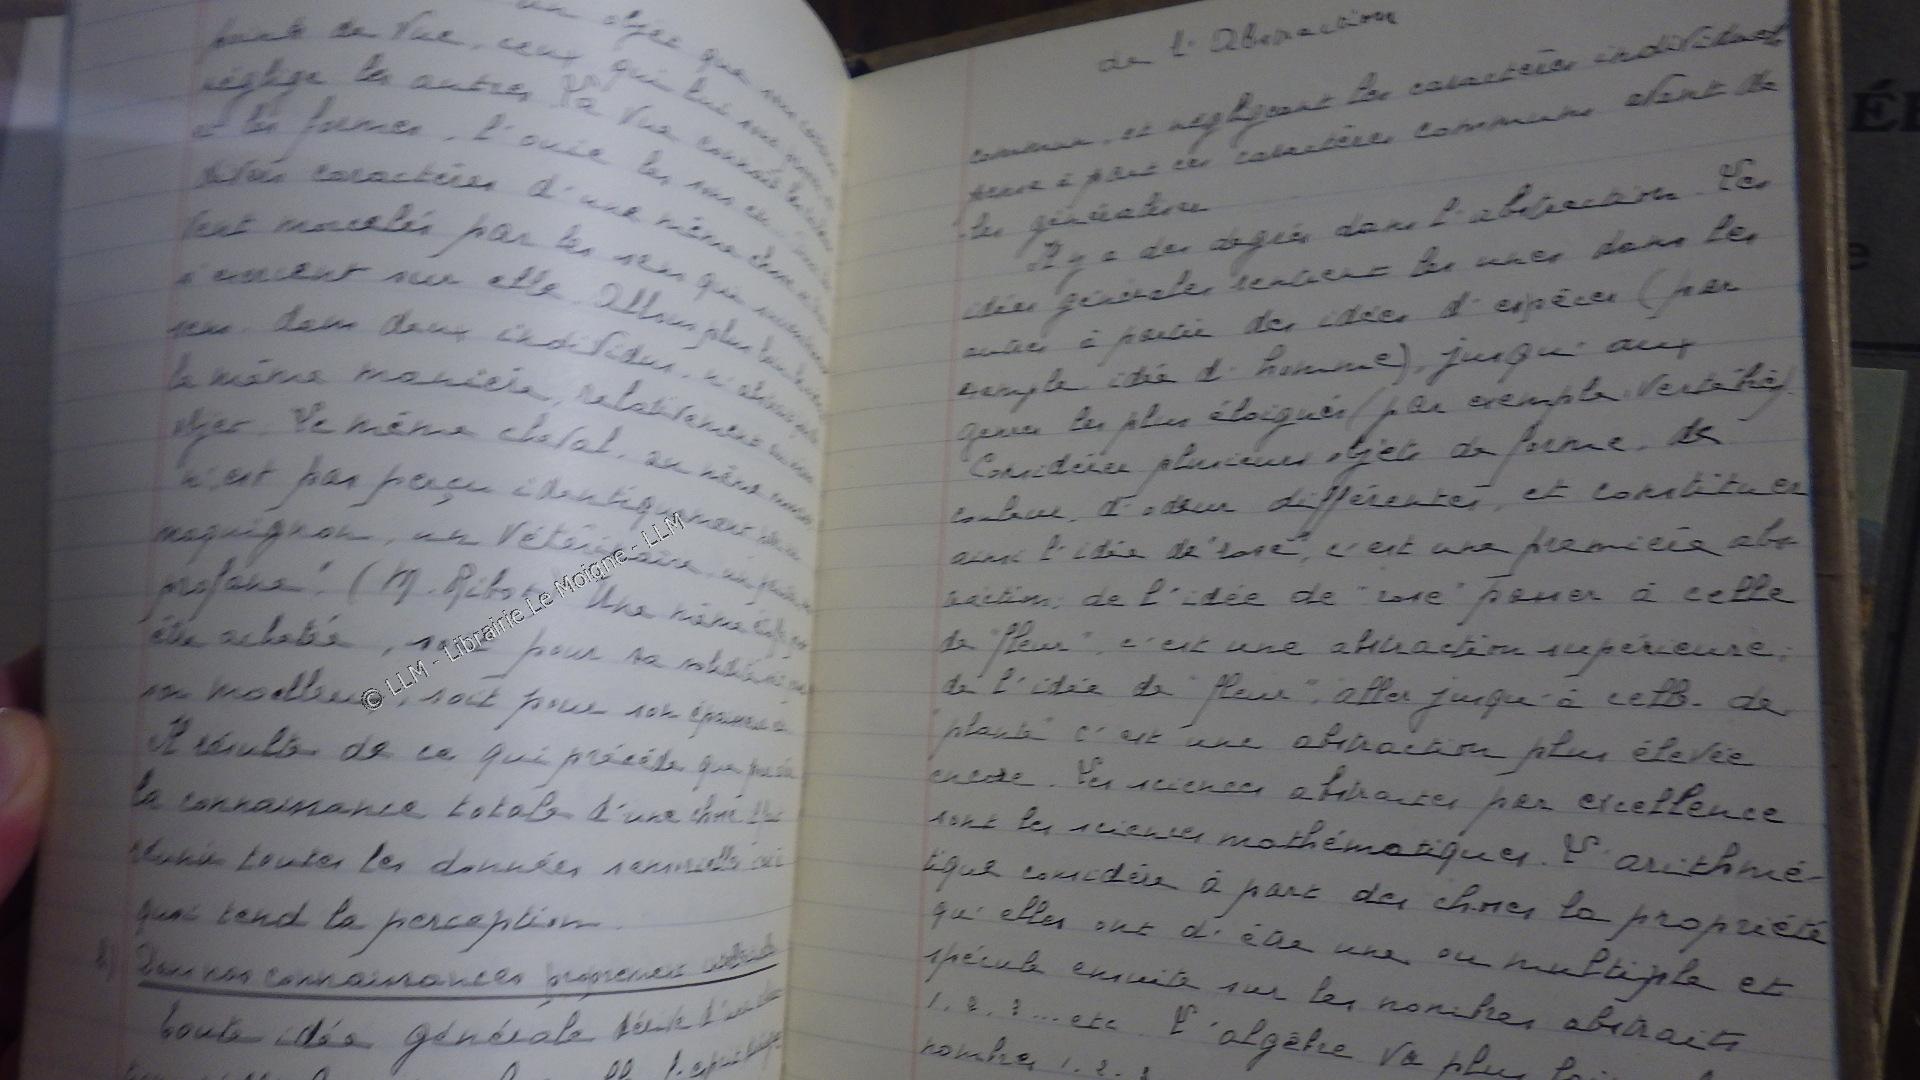 un objet que nous
point de vue, ceux qui lui sont
néglige les autres. La vue connaît les
et les formes, l'ouïe les sons
divers caractères d'une même chose
vent morcelés par les sens qui
s'exercent sur elle. Allons plus loin
sens. dans deux individus, n'
la même manière, relativement au même
objet. Le même cheval, au même moment
n'est pas perçu identiquement
maquignon, un vétérinaire, un
profane". (M. Ribot) Une même
être achetée, soit pour sa solidité
son moelleux, soit pour son
Il résulte de ce qui précède que
la connaissance totale d'une chose
réunir toutes les données sensorielles
quoi tend la perception.
2) Dans nos connaissances proprement
toute idée générale dérive d'une
l'esprit
© LLM - Librairie Le Moigne - LLM
de l'Abstraction
commun, et négligeant les caractères individuels
pense à part ces caractères communs avant de
les généraliser
Il y a des degrés dans l'abstraction. Les
idées générales rentrent les unes dans les
autres à partir des idées d'espèces (par
exemple idée d'homme), jusqu'aux
genres les plus éloignés (par exemple. Vertébré)
Considérer plusieurs objets de forme, de
couleur, d'odeur différentes, et constituer
ainsi l'idée de "rose", c'est une première abs-
traction; de l'idée de "rose" passer à celle
de "fleur", c'est une abstraction supérieure;
de l'idée de "fleur", aller jusqu'à celle de
"plante" c'est une abstraction plus élevée
encore. Les sciences abstraites par excellence
sont les sciences mathématiques. L'arithmé-
tique considère à part des choses la propriété
qu'elles ont d'être une ou multiple et
spécule ensuite sur les nombres abstraits
1. 2. 3 ... etc. L'algèbre va plus loin
nombres 1. 2. 3